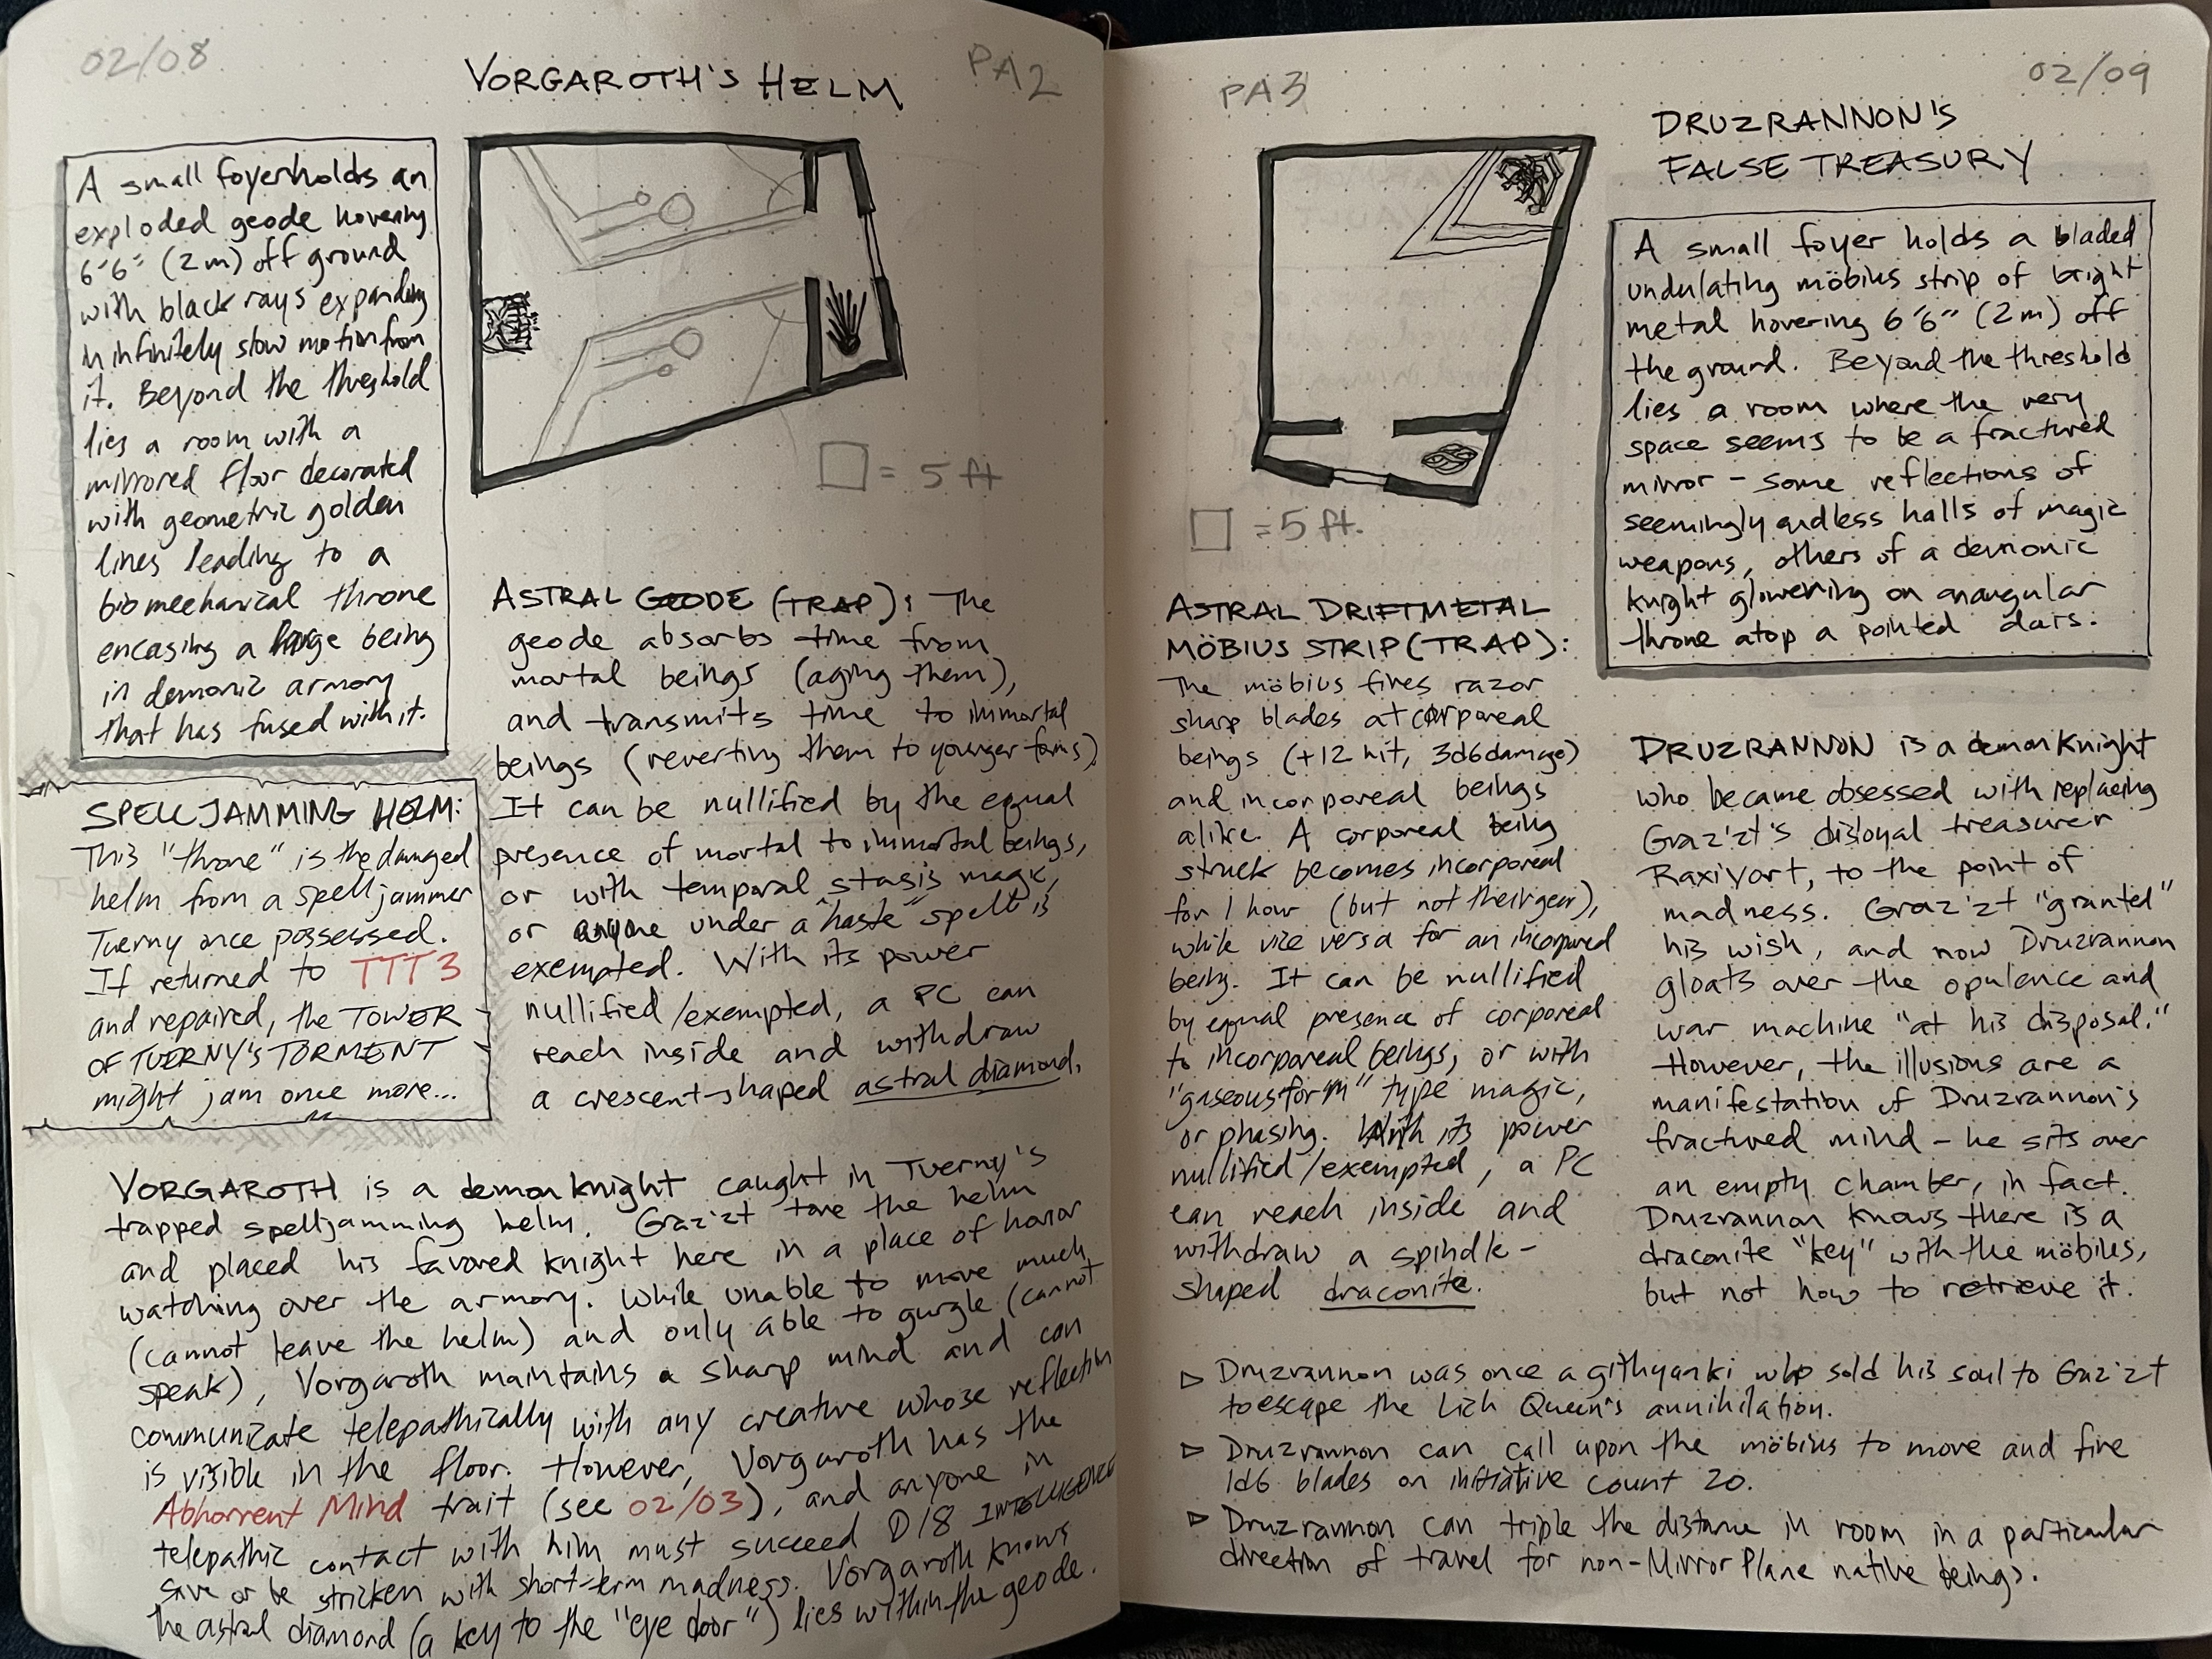 02/08
VORGAROTH'S HELM
PA2
A small foyer holds an
exploded geode hovering
6'6" (2m) off ground
with black rays expanding
in infinitely slow motion from
it. Beyond the threshold
lies a room with a
mirrored floor decorated
with geometric golden
lines leading to a
biomechanical throne
encasing a large being
in demonic armory
that has fused with it.
□ = 5 ft
SPELLJAMMING HELM:
This "throne" is the damaged
helm from a spelljammer
Tuerny once possessed.
If returned to TTT3
and repaired, the TOWER
OF TUERNY'S TORMENT
might jam once more...
ASTRAL GEODE (TRAP): The
geode absorbs time from
mortal beings (aging them),
and transmits time to immortal
beings (reverting them to younger forms).
It can be nullified by the equal
presence of mortal to immortal beings,
or with temporal stasis magic,
or anyone under a "haste" spell is
exempted. With its power
nullified/exempted, a PC can
reach inside and withdraw
a crescent-shaped astral diamond.
VORGAROTH is a demon knight caught in Tuerny's
trapped spelljamming helm. Graz'zt tore the helm
and placed his favored knight here in a place of honor
watching over the armory. While unable to move much
(cannot leave the helm) and only able to gurgle (cannot
speak), Vorgaroth maintains a sharp mind and can
communicate telepathically with any creature whose reflection
is visible in the floor. However, Vorgaroth has the
Abhorrent Mind trait (see 02/03), and anyone in
telepathic contact with him must succeed D18 INTELLIGENCE
save or be stricken with short-term madness. Vorgaroth knows
the astral diamond (a key to the "eye door") lies within the geode.
PA3
02/09
DRUZRANNON'S
FALSE TREASURY
A small foyer holds a bladed
undulating möbius strip of bright
metal hovering 6'6" (2m) off
the ground. Beyond the threshold
lies a room where the very
space seems to be a fractured
mirror – some reflections of
seemingly endless halls of magic
weapons, others of a demonic
knight glowering on an angular
throne atop a pointed dais.
□ = 5 ft.
ASTRAL DRIFTMETAL
MÖBIUS STRIP (TRAP):
The möbius fires razor
sharp blades at corporeal
beings (+12 hit, 3d6 damage)
and incorporeal beings
alike. A corporeal being
struck becomes incorporeal
for 1 hour (but not their gear),
while vice versa for an incorporeal
being. It can be nullified
by equal presence of corporeal
to incorporeal beings, or with
"gaseous form" type magic,
or phasing. With its power
nullified/exempted, a PC
can reach inside and
withdraw a spindle-
shaped draconite.
DRUZRANNON is a demon knight
who became obsessed with replacing
Graz'zt's disloyal treasurer
Raxivort, to the point of
madness. Graz'zt "granted"
his wish, and now Druzrannon
gloats over the opulence and
war machine "at his disposal."
However, the illusions are a
manifestation of Druzrannon's
fractured mind – he sits over
an empty chamber, in fact.
Druzrannon knows there is a
draconite "key" with the möbius,
but not how to retrieve it.
▷ Druzrannon was once a githyanki who sold his soul to Graz'zt
to escape the Lich Queen's annihilation.
▷ Druzrannon can call upon the möbius to move and fire
1d6 blades on initiative count 20.
▷ Druzrannon can triple the distance in room in a particular
direction of travel for non-Mirror Plane native beings.